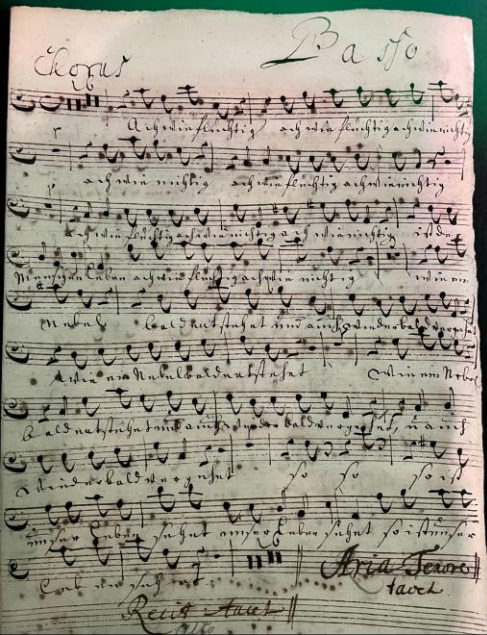 Chorus Basso
Ach wie flüchtig ach wie flüchtig ach wie nichtig
ach wie nichtig ach wie flüchtig ach wie nichtig
ach wie flüchtig ach wie nichtig ach wie nichtig ist der
Menschen Leben ach wie flüchtig ach wie nichtig wie ein
Nebel bald entstehet und auch wieder bald vergehet
wie ein Nebel bald entstehet wie ein Nebel
bald entstehet und auch wieder bald vergehet, u auch
wieder bald vergehet so so so ist
unser Leben sehet unser Leben sehet so ist unser
Leben sehet
Aria Tenore
tacet
Recit tacet